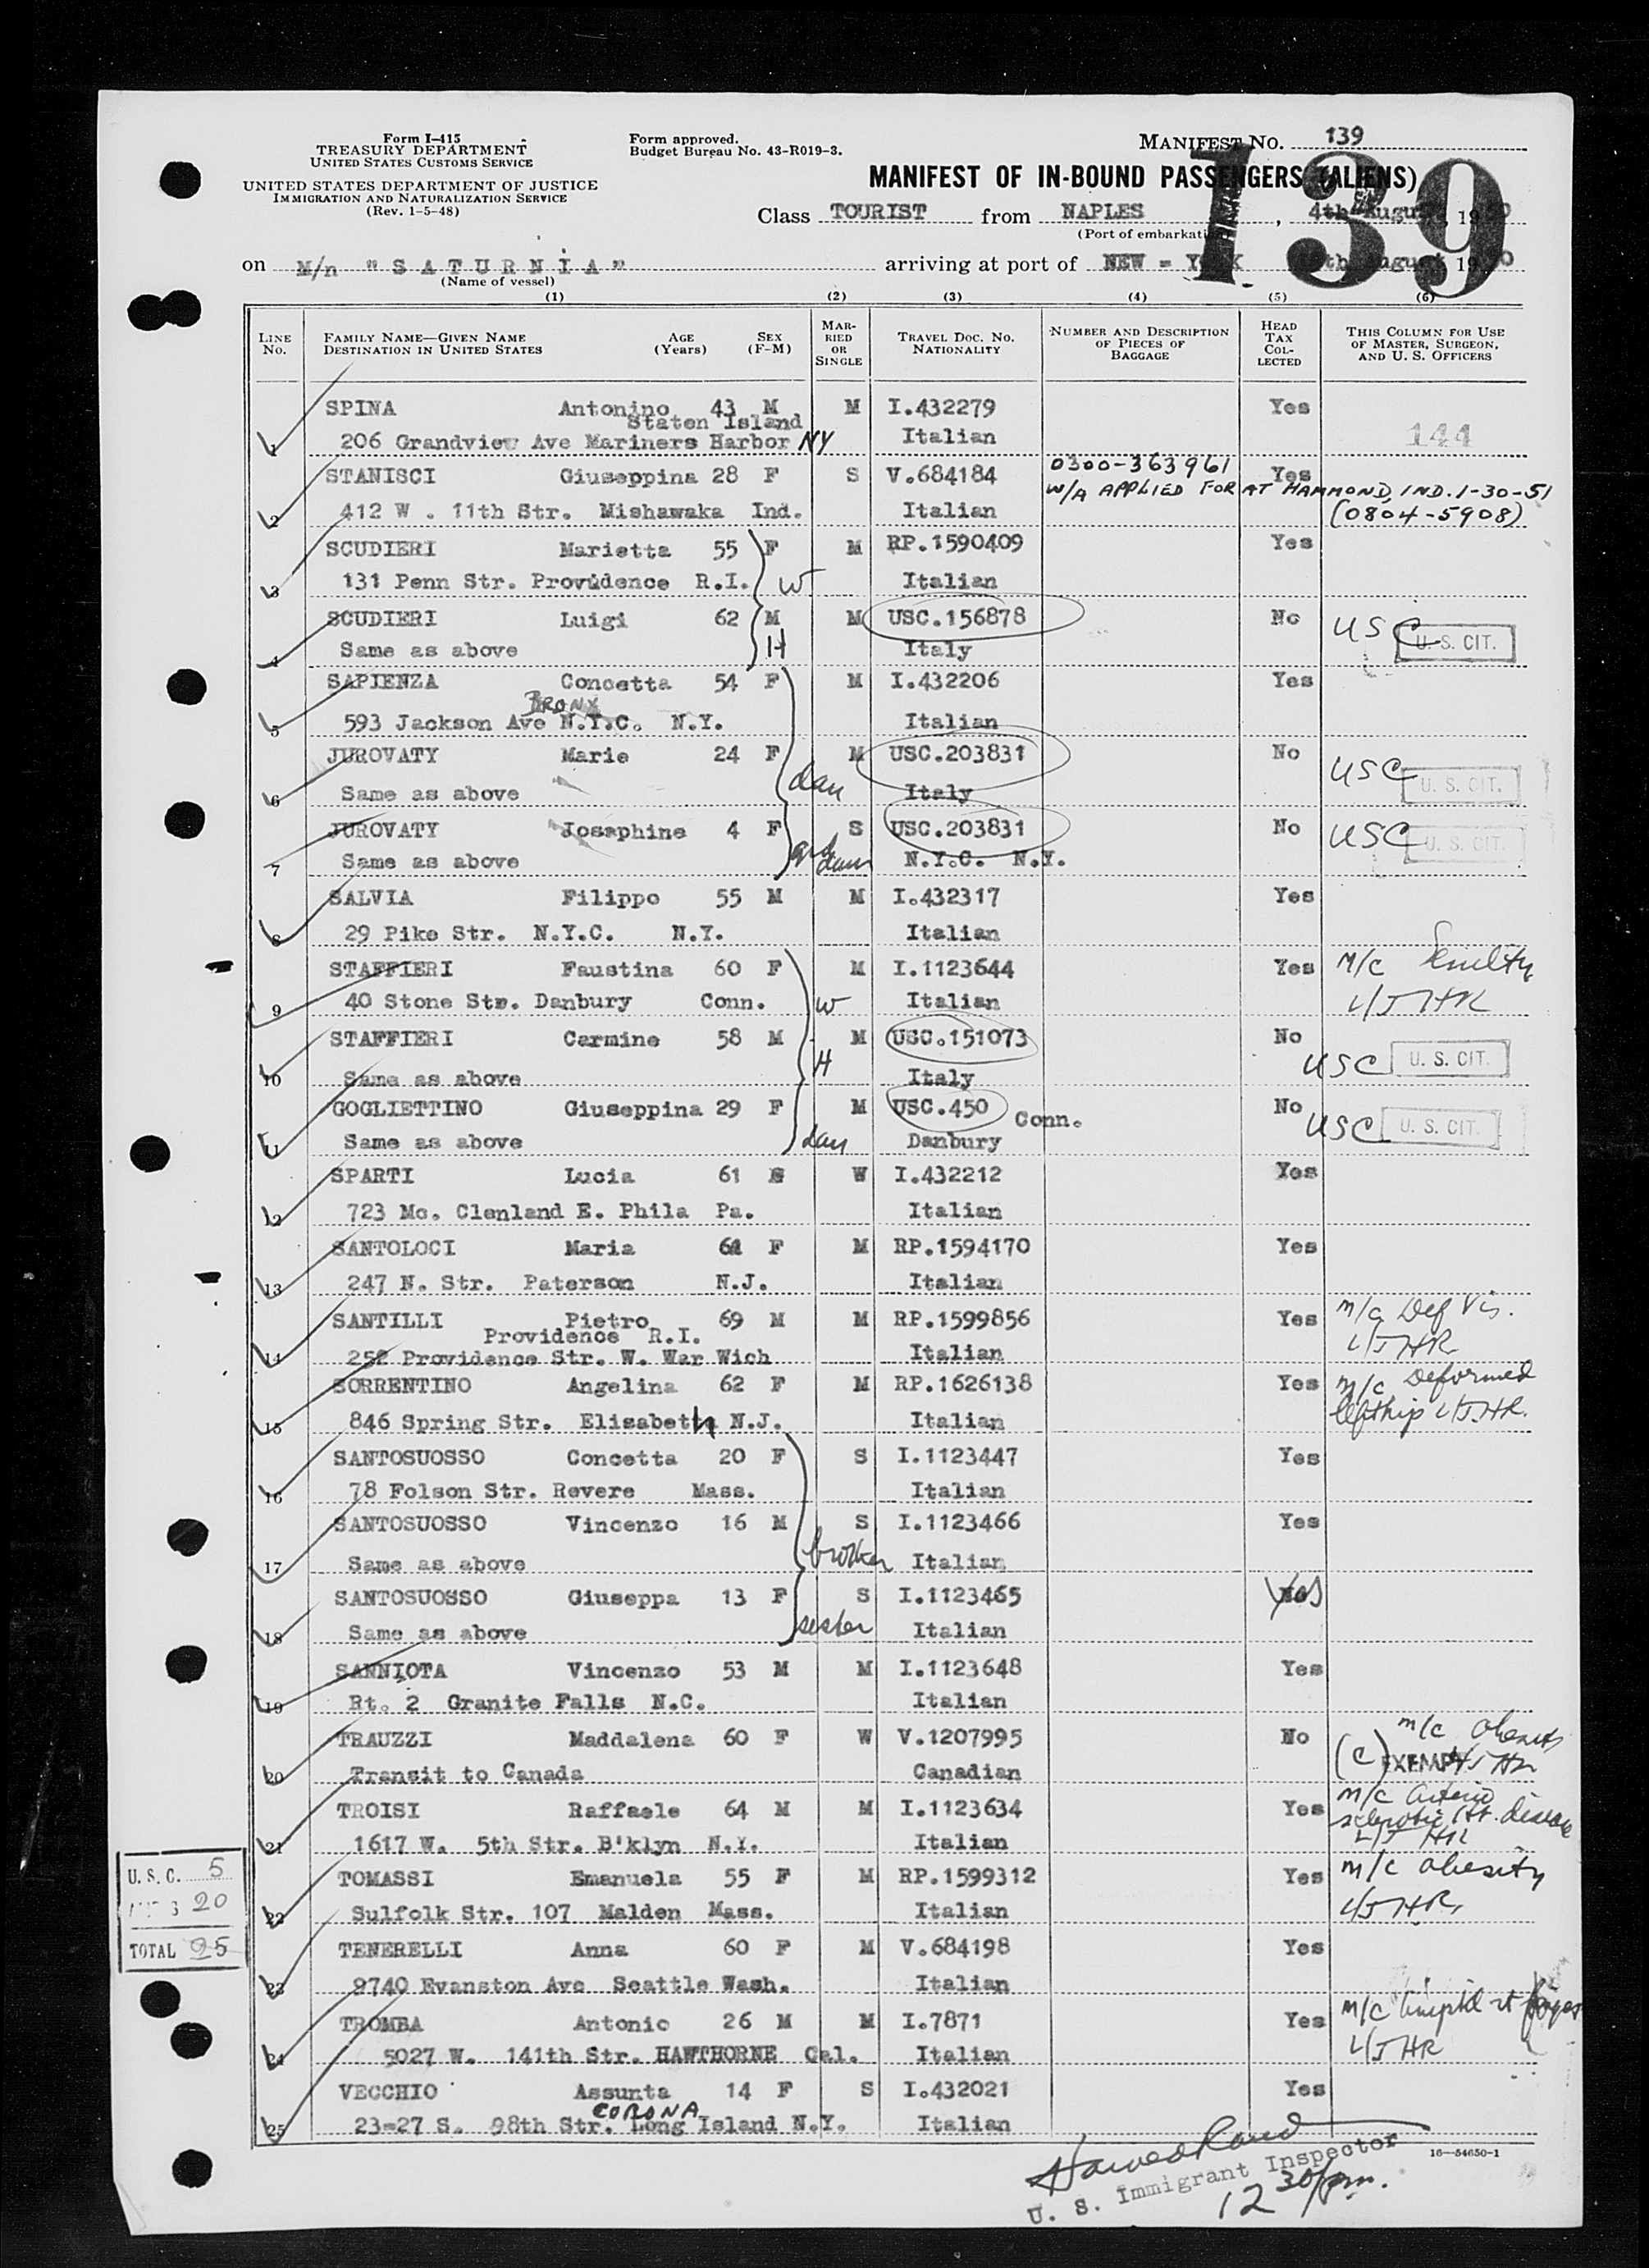 Form I-415
TREASURY DEPARTMENT
UNITED STATES CUSTOMS SERVICE
UNITED STATES DEPARTMENT OF JUSTICE
IMMIGRATION AND NATURALIZATION SERVICE
(Rev. 1-5-48)
Form approved.
Budget Bureau No. 43-R019-3.
MANIFEST NO. 139
139
MANIFEST OF IN-BOUND PASSENGERS (ALIENS)
Class TOURIST from NAPLES, 4th August, 19
(Port of embarkation)
on M/n "SATURNIA" arriving at port of NEW = YORK August 19
(Name of vessel)
(1) (2) (3) (4) (5) (6)
LINE No. FAMILY NAME—GIVEN NAME DESTINATION IN UNITED STATES AGE (Years) SEX (F-M) MARRIED OR SINGLE TRAVEL DOC. NO. NATIONALITY NUMBER AND DESCRIPTION OF PIECES OF BAGGAGE HEAD TAX COLLECTED THIS COLUMN FOR USE OF MASTER, SURGEON, AND U. S. OFFICERS
SPINA Antonino 43 M M I.432279 Yes
Staten Island
1 206 Grandview Ave Mariners Harbor NY Italian 144
STANISCI Giuseppina 28 F S V.684184 0300-363961 Yes
W/A APPLIED FOR AT HAMMOND, IND. 1-30-51
2 412 W . 11th Str. Mishawaka Ind. Italian (0804-5908)
SCUDIERI Marietta 55 F M RP.1590409 Yes
3 131 Penn Str. Providence R.I. W Italian
SCUDIERI Luigi 62 M M USC.156878 No USC U. S. CIT.
4 Same as above H Italy
SAPIENZA Concetta 54 F M I.432206 Yes
BRONX
5 593 Jackson Ave N.Y.C. N.Y. Italian
JUROVATY Marie 24 F M USC.203831 No USC U. S. CIT.
6 Same as above dau Italy
JUROVATY Josephine 4 F S USC.203831 No USC U. S. CIT.
7 Same as above dau N.Y.C. N.Y.
SALVIA Filippo 55 M M I.432317 Yes
8 29 Pike Str. N.Y.C. N.Y. Italian
STAFFIERI Faustina 60 F M I.1123644 Yes M/C Senility
9 40 Stone Str. Danbury Conn. W Italian L/J HR
STAFFIERI Carmine 58 M M USC.151073 No USC U. S. CIT.
10 Same as above H Italy
GOGLIETTINO Giuseppina 29 F M USC.450 Conn. No USC U. S. CIT.
11 Same as above dau Danbury
SPARTI Lucia 61 W I.432212 Yes
12 723 Mc. Clenland E. Phila Pa. Italian
SANTOLOCI Maria 61 F M RP.1594170 Yes
13 247 N. Str. Paterson N.J. Italian
SANTILLI Pietro 69 M M RP.1599856 Yes m/c Def Vis.
Providence R.I.
14 252 Providence Str. W. War Wich Italian L/J HR
SORRENTINO Angelina 62 F M RP.1626138 Yes m/c Deformed
15 846 Spring Str. Elisabeth N.J. Italian left hip L/J HR.
SANTOSUOSSO Concetta 20 F S I.1123447 Yes
16 78 Folson Str. Revere Mass. Italian
SANTOSUOSSO Vincenzo 16 M S I.1123466 Yes
17 Same as above brother Italian
SANTOSUOSSO Giuseppa 13 F S I.1123465 Yes
18 Same as above sister Italian
SANNIOTA Vincenzo 53 M M I.1123648 Yes
19 Rt. 2 Granite Falls N.C. Italian
TRAUZZI Maddalena 60 F W V.1207995 No m/c obesity
20 Transit to Canada Canadian (C) EXEMPT L/J HR
TROISI Raffaele 64 M M I.1123634 Yes m/c arterio sclerotic Ht. disease
21 1617 W. 5th Str. B'klyn N.Y. Italian L/J HR
TOMASSI Emanuela 55 F M RP.1599312 Yes m/c obesity
22 Sulfolk Str. 107 Malden Mass. Italian L/J HR,
TENERELLI Anna 60 F M V.684198 Yes
23 9740 Evanston Ave Seattle Wash. Italian
TROMBA Antonio 26 M M I.7871 Yes m/c
24 5027 W. 141th Str. HAWTHORNE Cal. Italian L/J HR
VECCHIO Assunta 14 F S I.432021 Yes
CORONA
25 23=27 S. 98th Str. Long Island N.Y. Italian
U. S. C. 5
20
TOTAL 25
16—54650-1
U. S. Immigrant Inspector
12 30/pm.